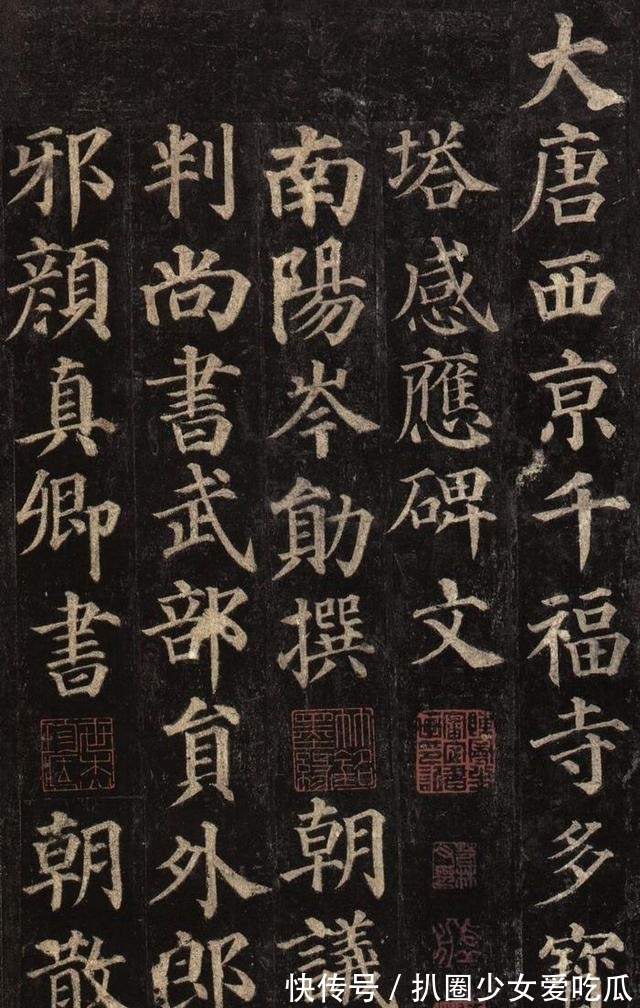 大唐西京千福寺多寶
塔感應碑文
南陽岑勛撰 朝議
判尚書武部員外郎
邪顏真卿書 朝散
快传号 / 扒圈少女爱吃瓜